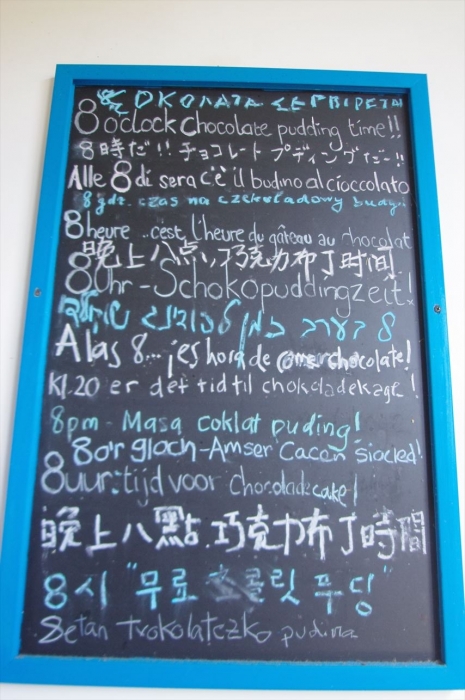 ΣΟΚΟΛΑΤΑ ΣΕΡΒΙΡΕΤΑΙ
8 o'clock chocolate pudding time!!
8時だ!! チョコレート プディングだー!!
Alle 8 di sera c'è il budino al cioccolato
8 gdz. czas na czekoladowy budyń
8 heure ..c'est l'heure du gâteau au chocolat
晚上八点,巧克力布丁时间
8 Uhr - Schokopuddingzeit!
8 בערב זמן לפודינג שוקולד
A las 8... ¡es hora de comer chocolate!
Kl.20 er det tid til chokoladekage!
8pm - Masa coklat puding!
8 o'r gloch - Amser Cacen siocled!
8 uur: tijd voor chocoladecake!
晚上八點.巧克力布丁時間
8시 "무료 초콜릿 푸딩"
8etan txokolatezko pudina